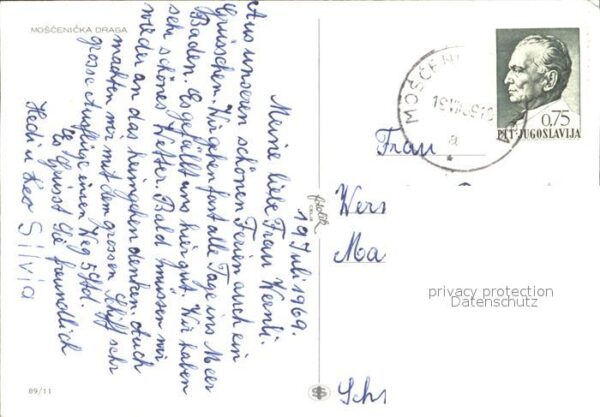 MOŠĆENIČKA DRAGA
19 Juli 1969.
Meine liebe Frau Weenli.
Aus unseren schönen Ferien auch ein
Grüsschen. Wir gehen fast alle Tage ins Meer
Baden. Es gefällt uns hier gut. Wir haben
sehr schönes Wetter. Bald müssen wir
wieder an das heimgehen denken. Auch
machten wir mit dem grossen Schiff sehr
grosse Ausflüge einen Weg 5 Std.
Es Grüsst Sie freundlich
Hedi u Leo Silvia
89/11
MOŠĆENI
a
0,75
PTT-JUGOSLAVIJA
Frau
Wers
Ma
Schs
privacy protection
Datenschutz